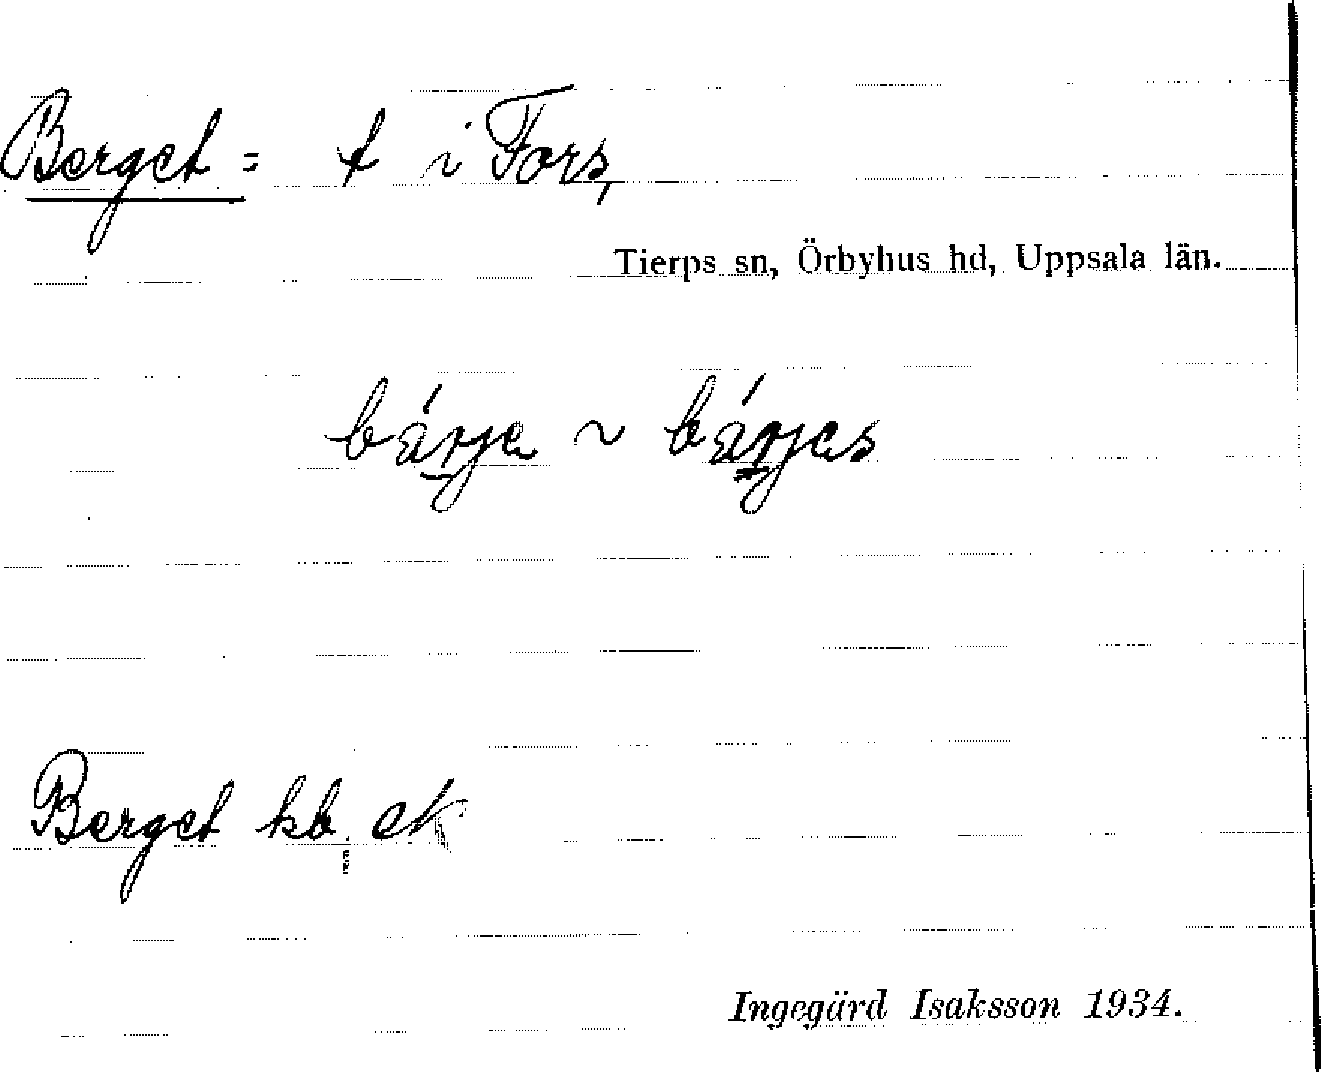 Berget = t i Fors,
Tierps sn, Örbyhus hd, Uppsala län.
bárje ~ bárjes
Berget kb. ek
Ingegärd Isaksson 1934.